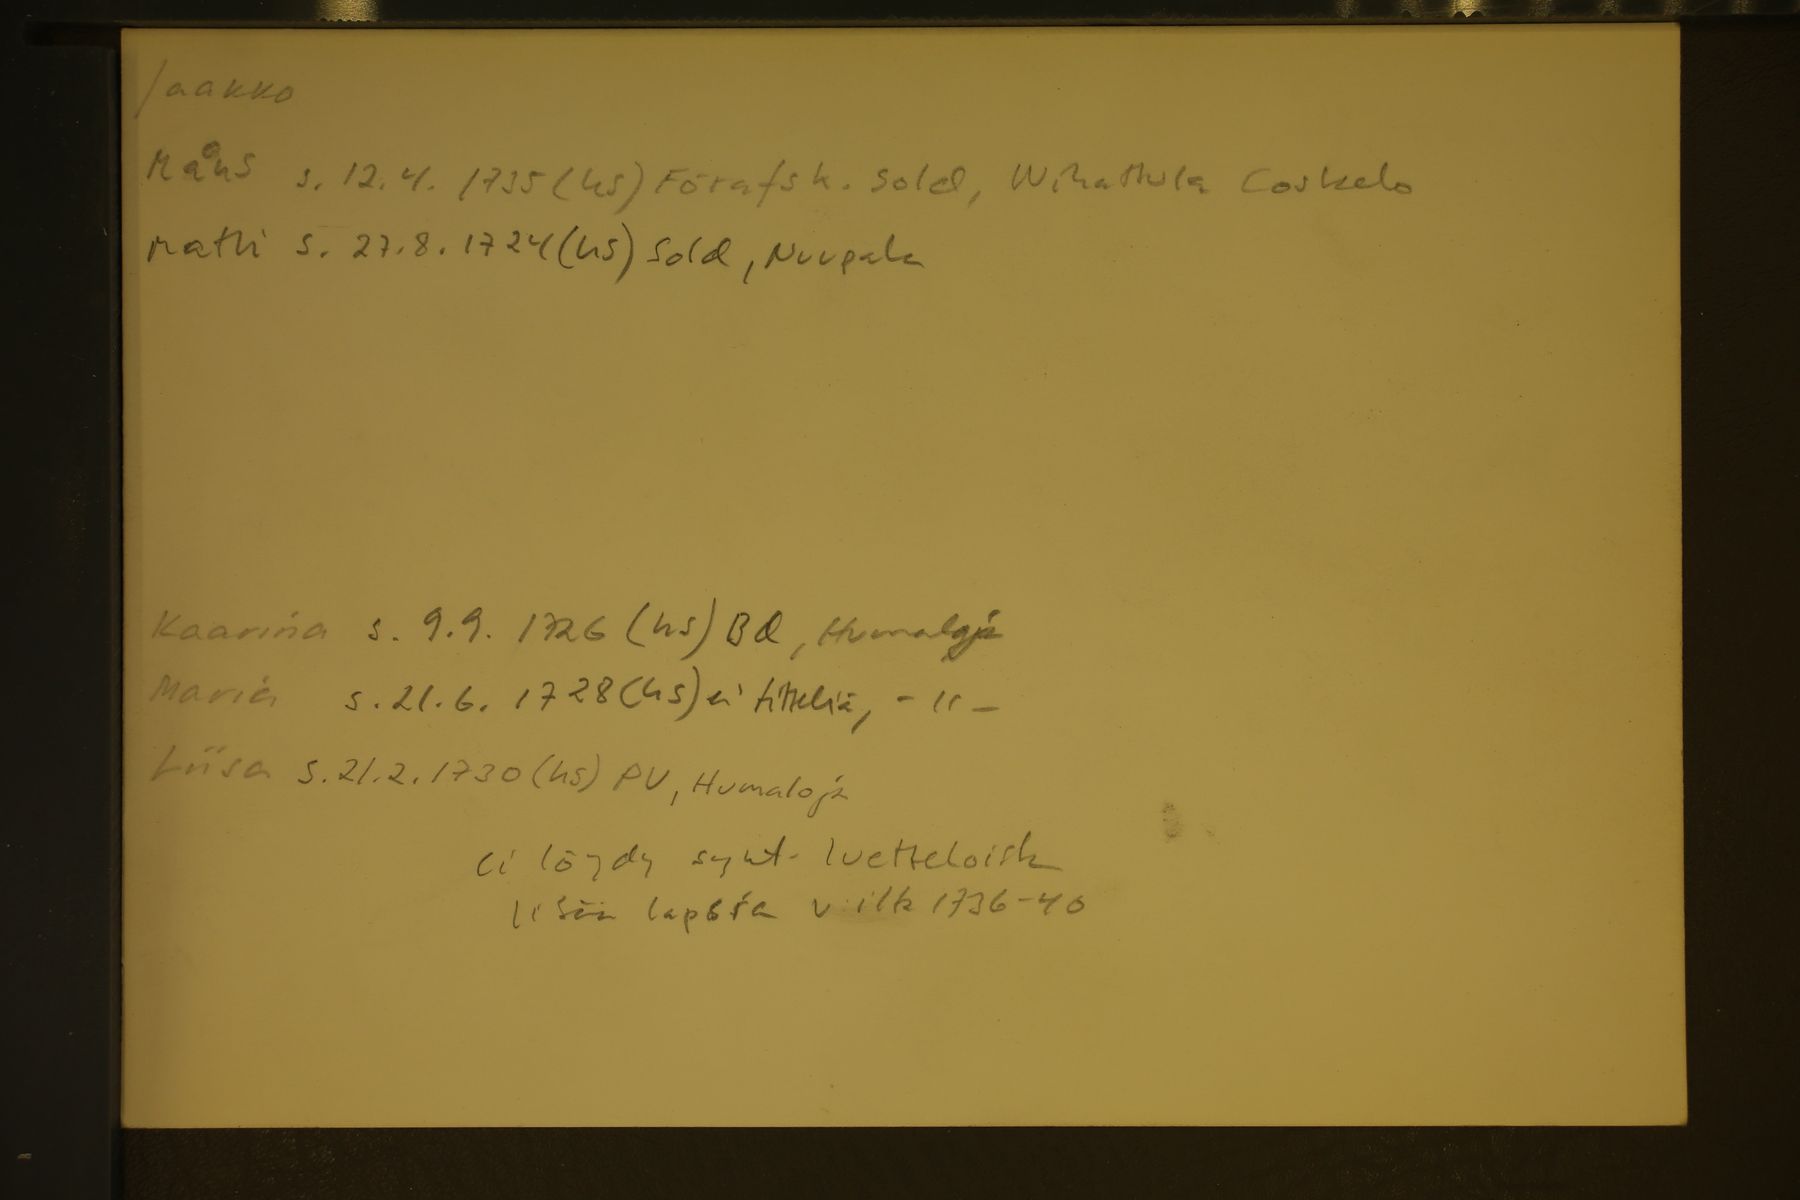 Jaakko
Måns s. 12.4. 1735 (hs) Förafsk. sold, Wihattula Coskelo
Matti s. 27.8. 1724 (hs) Sold, Nuupala
Kaarina s. 9.9. 1726 (hs) Bd, Humaloja
Maria s. 21.6. 1728 (hs) ei titteliä, - " -
Liisa s. 21.2. 1730 (hs) PV, Humaloja
ei löydy synt. luetteloista
lisää lapsia v:ilta 1736-40